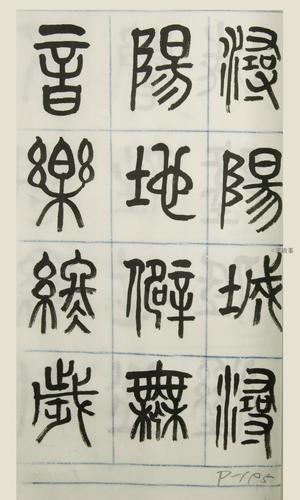 潯陽城潯
陽地僻無
音樂終歲